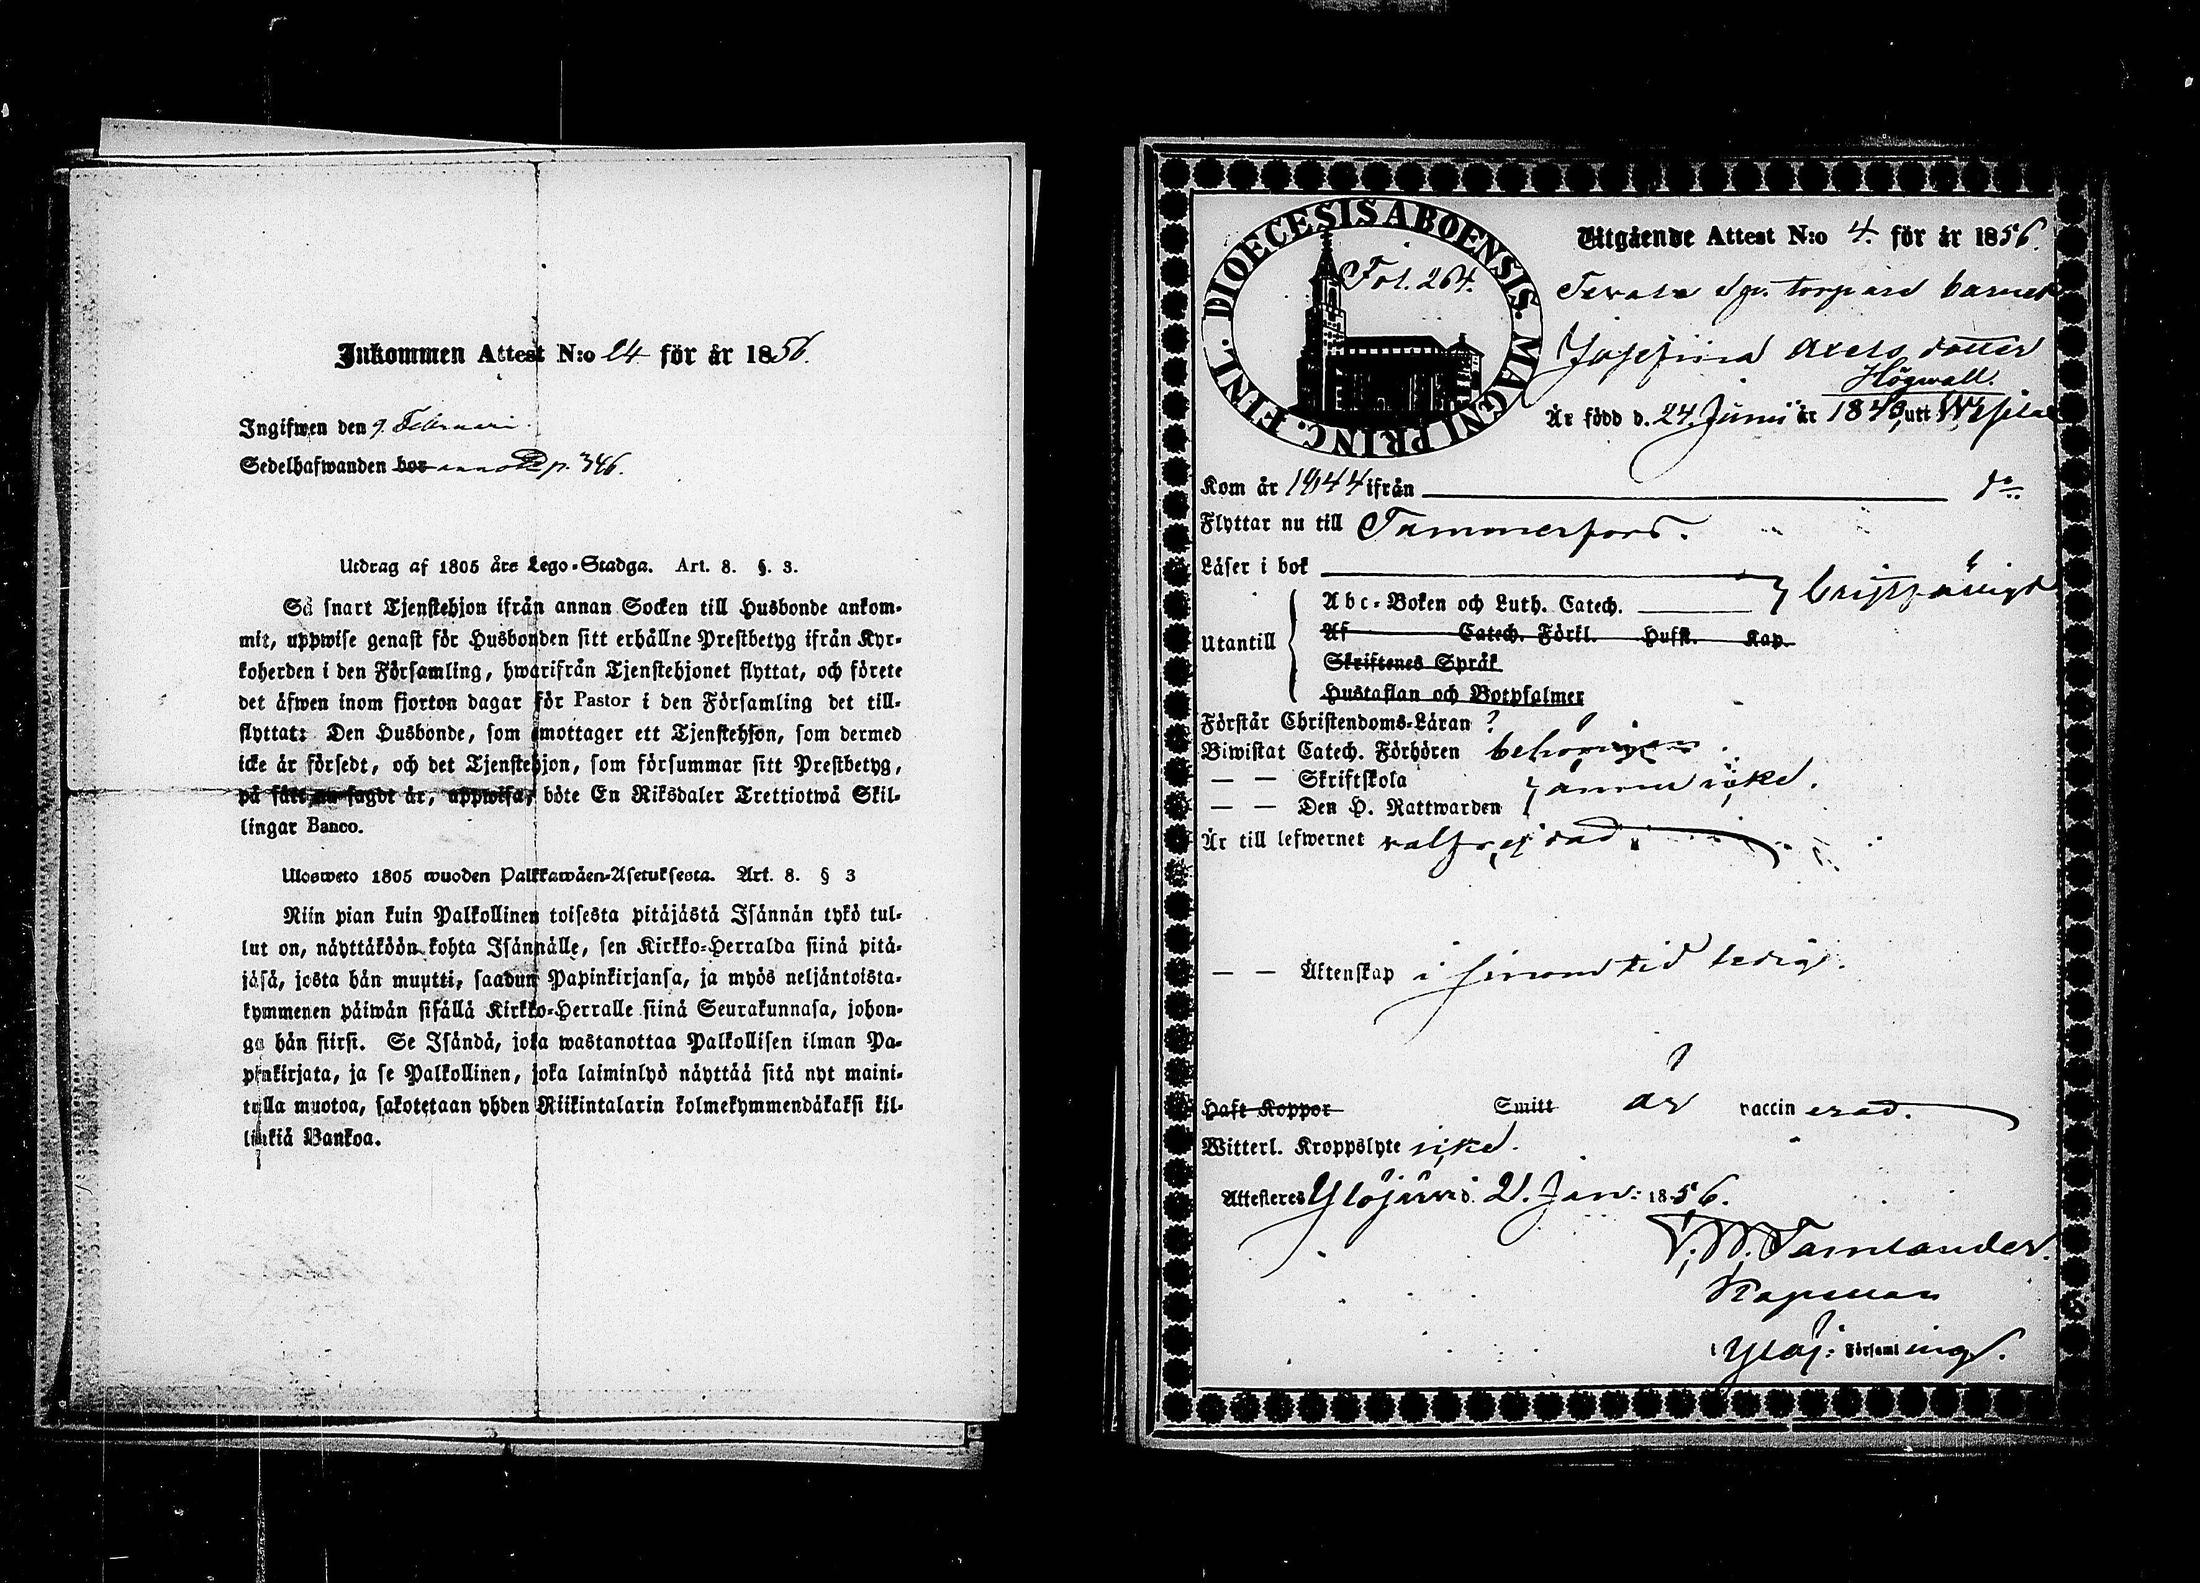 Inkommen Attest N:o 24 för år 1856.
Ingifwen den 9 Februari.
Sedelhafwanden bor annot p. 346.
Utdrag af 1805 års Lego-Stadga. Art. 8. §. 3.
Så snart Tjenstehjon ifrån annan Socken till Husbonde ankom-
mit, uppwise genast för Husbonden sitt erhållne Prestbetyg ifrån Kyr-
koherden i den Församling, hwarifrån Tjenstehjonet flyttat, och förete
det äfwen inom fjorton dagar för Pastor i den Församling det till-
flyttat: Den Husbonde, som emottager ett Tjenstehjon, som dermed
icke är försedt, och det Tjenstehjon, som försummar sitt Prestbetyg,
på sätt nu sagdt är, uppwisa, böte En Riksdaler Trettiotwå Skil-
lingar Banco.
Ulosweto 1805 wuoden Palkkawäen-Asetuksesta. Art. 8. § 3
Niin pian kuin Palkollinen toisesta pitäjästä Isännän tykö tul-
lut on, näyttäköön kohta Isännälle, sen Kirkko-Herralda siinä pitä-
jäsä, josta hän muutti, saadun Papinkirjansa, ja myös neljäntoista-
kymmenen päiwän sisällä Kirkko-Herralle siinä Seurakunnasa, johon-
ga hän siirsi. Se Isändä, joka wastanottaa Palkollisen ilman Pa-
pinkirjata, ja se Palkollinen, joka laiminlyö näyttää sitä nyt maini-
tulla muotoa, sakotetaan yhden Riikintalarin kolmekymmendäkaksi kil-
linkiä Bankoa.
DIOECESIS ABOENSIS. MAGNI PRINC. FINL.
Fol. 264.
Utgående Attest N:o 4. för år 1856.
torpare barnet
Josefina Axels dotter
Högwall.
Är född d. 24 Junii år 1843, utt
Kom år 1844 ifrån d:o
Flyttar nu till Tammerfors.
Läser i bok
Utantill
Abc-Boken och Luth. Catech. bristfälligt
Af Catech. Förkl. Hufst. Kap.
Skriftenes Språk
Hustaflan och Botpsalmer
Förstår Christendoms-Läran ?
Biwistat Catech. Förhören behörigen.
— — Skriftskola
— — Den H. Nattwarden ännu icke.
Är till lefwernet
— — Äktenskap i sinom tid ledig.
Haft Koppor Smitt är vaccinerad.
Witterl. Kroppslyte icke.
Attesteres Ylöjärvi d. 21. Jan: 1856.
Kapellan
i Ylöj: Församlings.